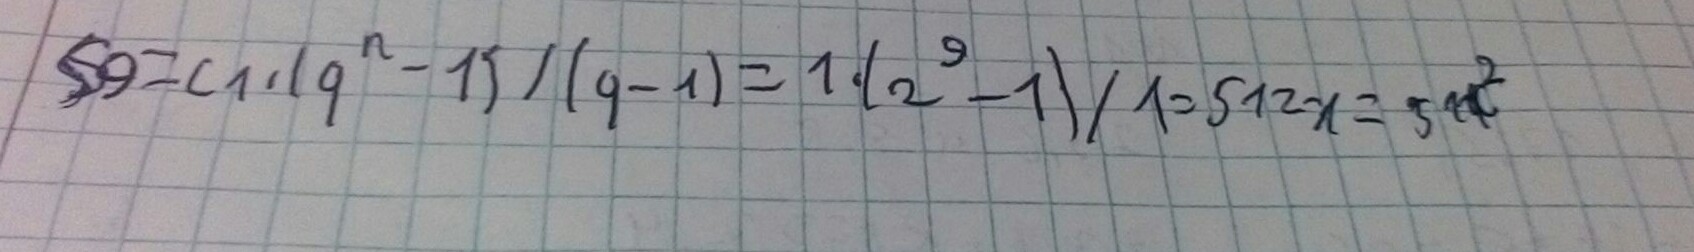 S9=c1·(q^n-1)/(q-1)=1·(2^9-1)/1=512-1=